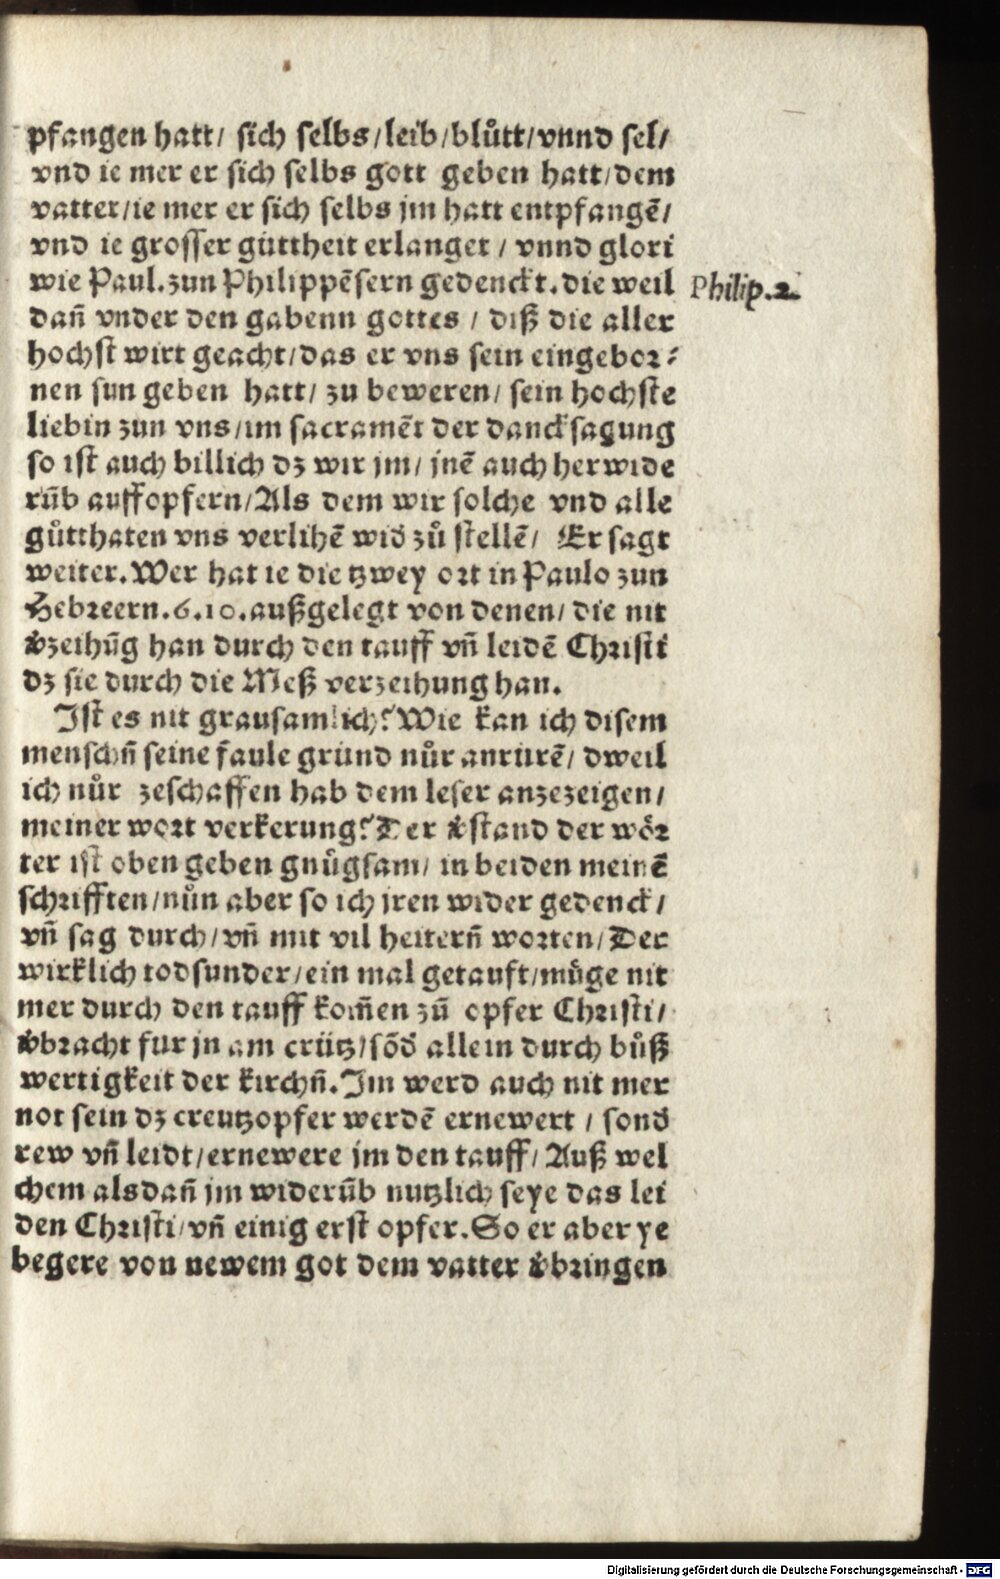 pfangen hatt/ sich selbs/leib/blůtt/vnnd sel/
vnd ie mer er sich selbs gott geben hatt/dem
vatter/ie mer er sich selbs jm hatt entpfangẽ/
vnd ie grosser güttheit erlanget / vnnd glori
wie Paul.zun Philippẽsern gedenckt.die weil
Philip.2.
dañ vnder den gabenn gottes / diß die aller
hochst wirt geacht/das er vns sein eingebor⸗
nen sun geben hatt/ zu beweren/ sein hochste
liebin zun vns/im sacramẽt der dancksagung
so ist auch billich dz wir jm/ jnẽ auch herwide
rũb auffopfern/Als dem wir solche vnd alle
gůtthaten vns verlihẽ wid̕ zů stellẽ/ Er sagt
weiter.Wer hat ie die tzwey ort in Paulo zun
Hebreern.6.10.außgelegt von denen/ die nit
v̕zeihũg han durch den tauff vñ leidẽ Christi
dz sie durch die Meß verzeihung han.
Ist es nit grausamlich? Wie kan ich disem
menschñ seine faule gründ nůr anrürẽ/ dweil
ich nůr zeschaffen hab dem leser anzezeigen/
meiner wort verkerung? Der v̕stand der wör
ter ist oben geben gnůgsam/ in beiden meinẽ
schrifften/nůn aber so ich jren wider gedenck/
vñ sag durch/vñ mit vil heiterñ worten/Der
wirklich todsunder/ein mal getauft/müge nit
mer durch den tauff kom̃en zů opfer Christi/
v̕bracht fur jn am crütz/sõd̕ allein durch bůß
wertigkeit der kirchñ.Im werd auch nit mer
not sein dz creutzopfer werdẽ ernewert / sond̕
rew vñ leidt/ernewere jm den tauff/ Auß wel
chem alsdañ jm widerũb nutzlich seye das lei
den Christi/vñ einig erst opfer.So er aber ye
begere von newem got dem vatter v̕bringen
Digitalisierung gefördert durch die Deutsche Forschungsgemeinschaft - DFG